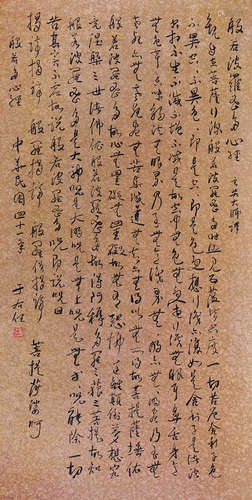 般若波羅蜜多心經 玄奘大師譯
觀自在菩薩行深般若波羅蜜多時照見五蘊皆空度一切苦厄舍利子色
不異空空不異色色即是空空即是色受想行識亦復如是舍利子是諸法
空相不生不滅不垢不淨不增不減是故空中無色無受想行識無眼耳鼻舌身意
無色聲香味觸法無眼界乃至無意識界無無明亦無無明盡乃至無
老死亦無老死盡無苦集滅道無智亦無得以無所得故菩提薩埵依
般若波羅蜜多故心無罣礙無罣礙故無有恐怖遠離顛倒夢想究
竟涅槃三世諸佛依般若波羅蜜多故得阿耨多羅三藐三菩提故知
般若波羅蜜多是大神咒是大明咒是無上咒是無等等咒能除一切
苦真實不虛故說般若波羅蜜多咒即說咒曰
揭諦揭諦 般羅揭諦 般羅僧揭諦 菩提薩婆訶
般若多心經
中華民國四十一年 于右任